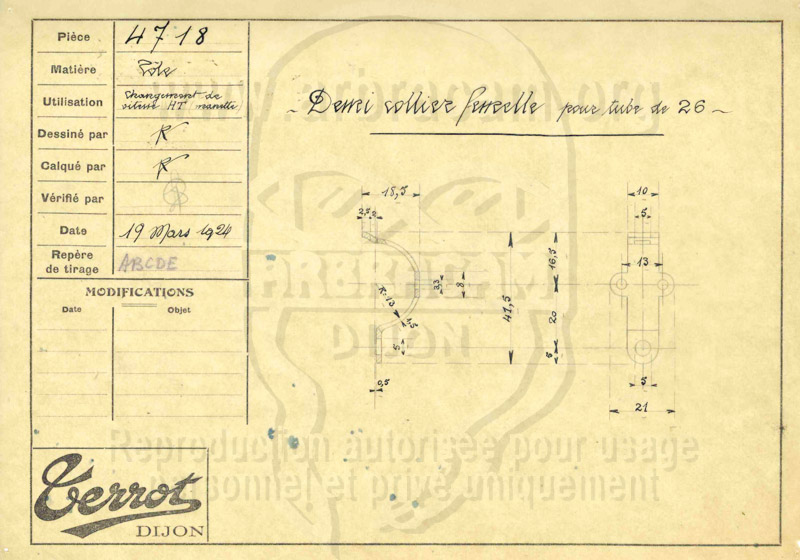 Pièce 4718
Matière Tôle
Utilisation Changement de
vitesse HT (manette)
Dessiné par R
Calqué par R
Vérifié par
Date 19 Mars 1924
Repère
de tirage ABCDE
MODIFICATIONS
Date Objet
Terrot
DIJON
Demi collier femelle pour tube de 26
18,5
2,5 2
R=13
1,5
5
0,5
3,3
8
41,5
16,5
20
6
10
5
13
5
21
ARBRACAM
DIJON
Reproduction autorisée pour usage
personnel et privé uniquement